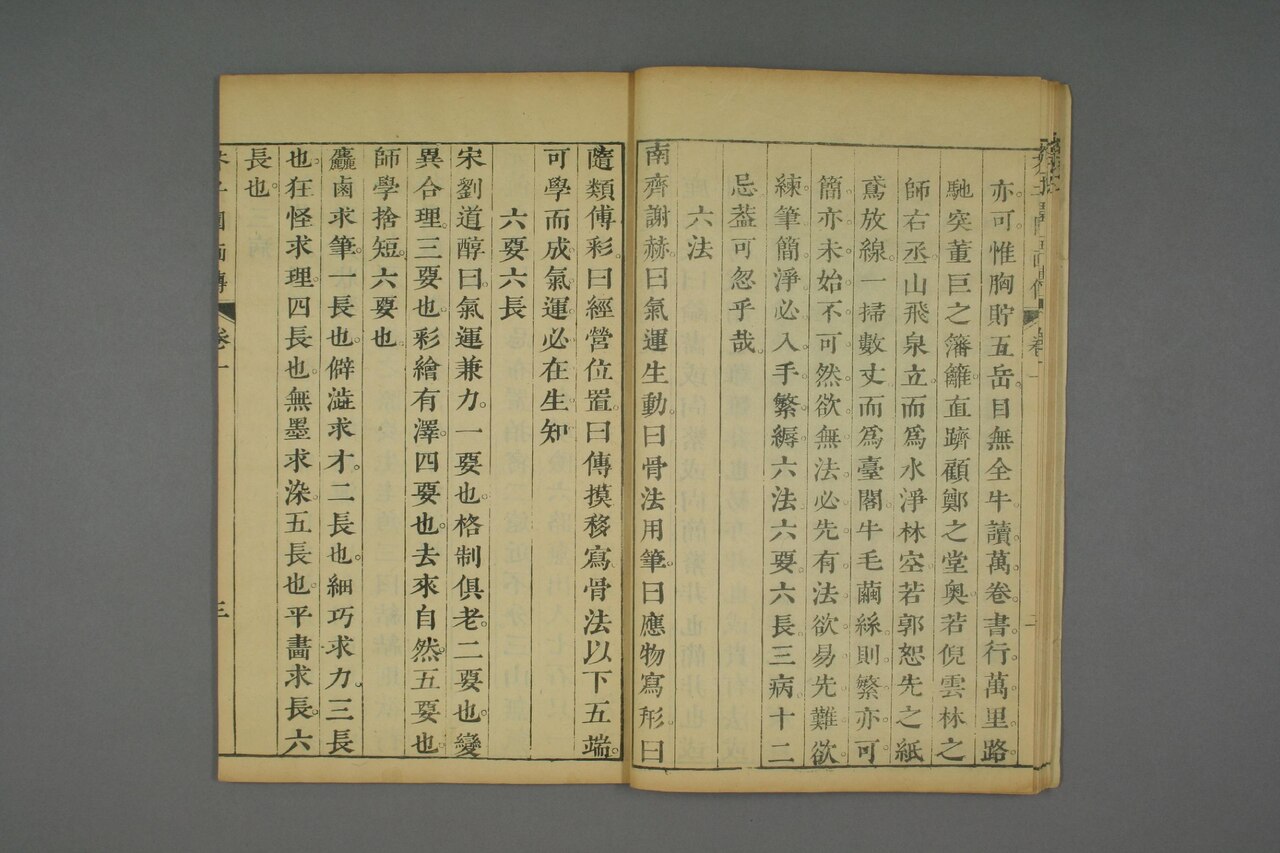 亦可。惟胸貯五岳。目無全牛。讀萬卷書。行萬里路。
馳突董巨之籓籬。直躋顧鄭之堂奧。若倪雲林之
師右丞。山飛泉立。而爲水淨林空。若郭恕先之紙
鳶放線。一掃數丈。而爲臺閣。牛毛繭絲。則繁亦可。
簡亦未始不可。然欲無法。必先有法。欲易先難。欲
練筆簡淨。必入手繁縟。六法六要。六長三病。十二
忌。葢可忽乎哉。
六法
南齊謝赫曰。氣運生動。曰骨法用筆。曰應物寫形。曰
隨類傅彩。曰經營位置。曰傳摸移寫。骨法以下五端。
可學而成。氣運必在生知
六要六長
宋劉道醇曰。氣運兼力。一要也。格制俱老。二要也。變
異合理。三要也。彩繪有澤。四要也。去來自然。五要也。
師學捨短。六要也。
麤鹵求筆。一長也。僻澁求才。二長也。細巧求力。三長
也。狂怪求理。四長也。無墨求染。五長也。平畵求長。六
長也。
芥子園畫傳
卷一
三